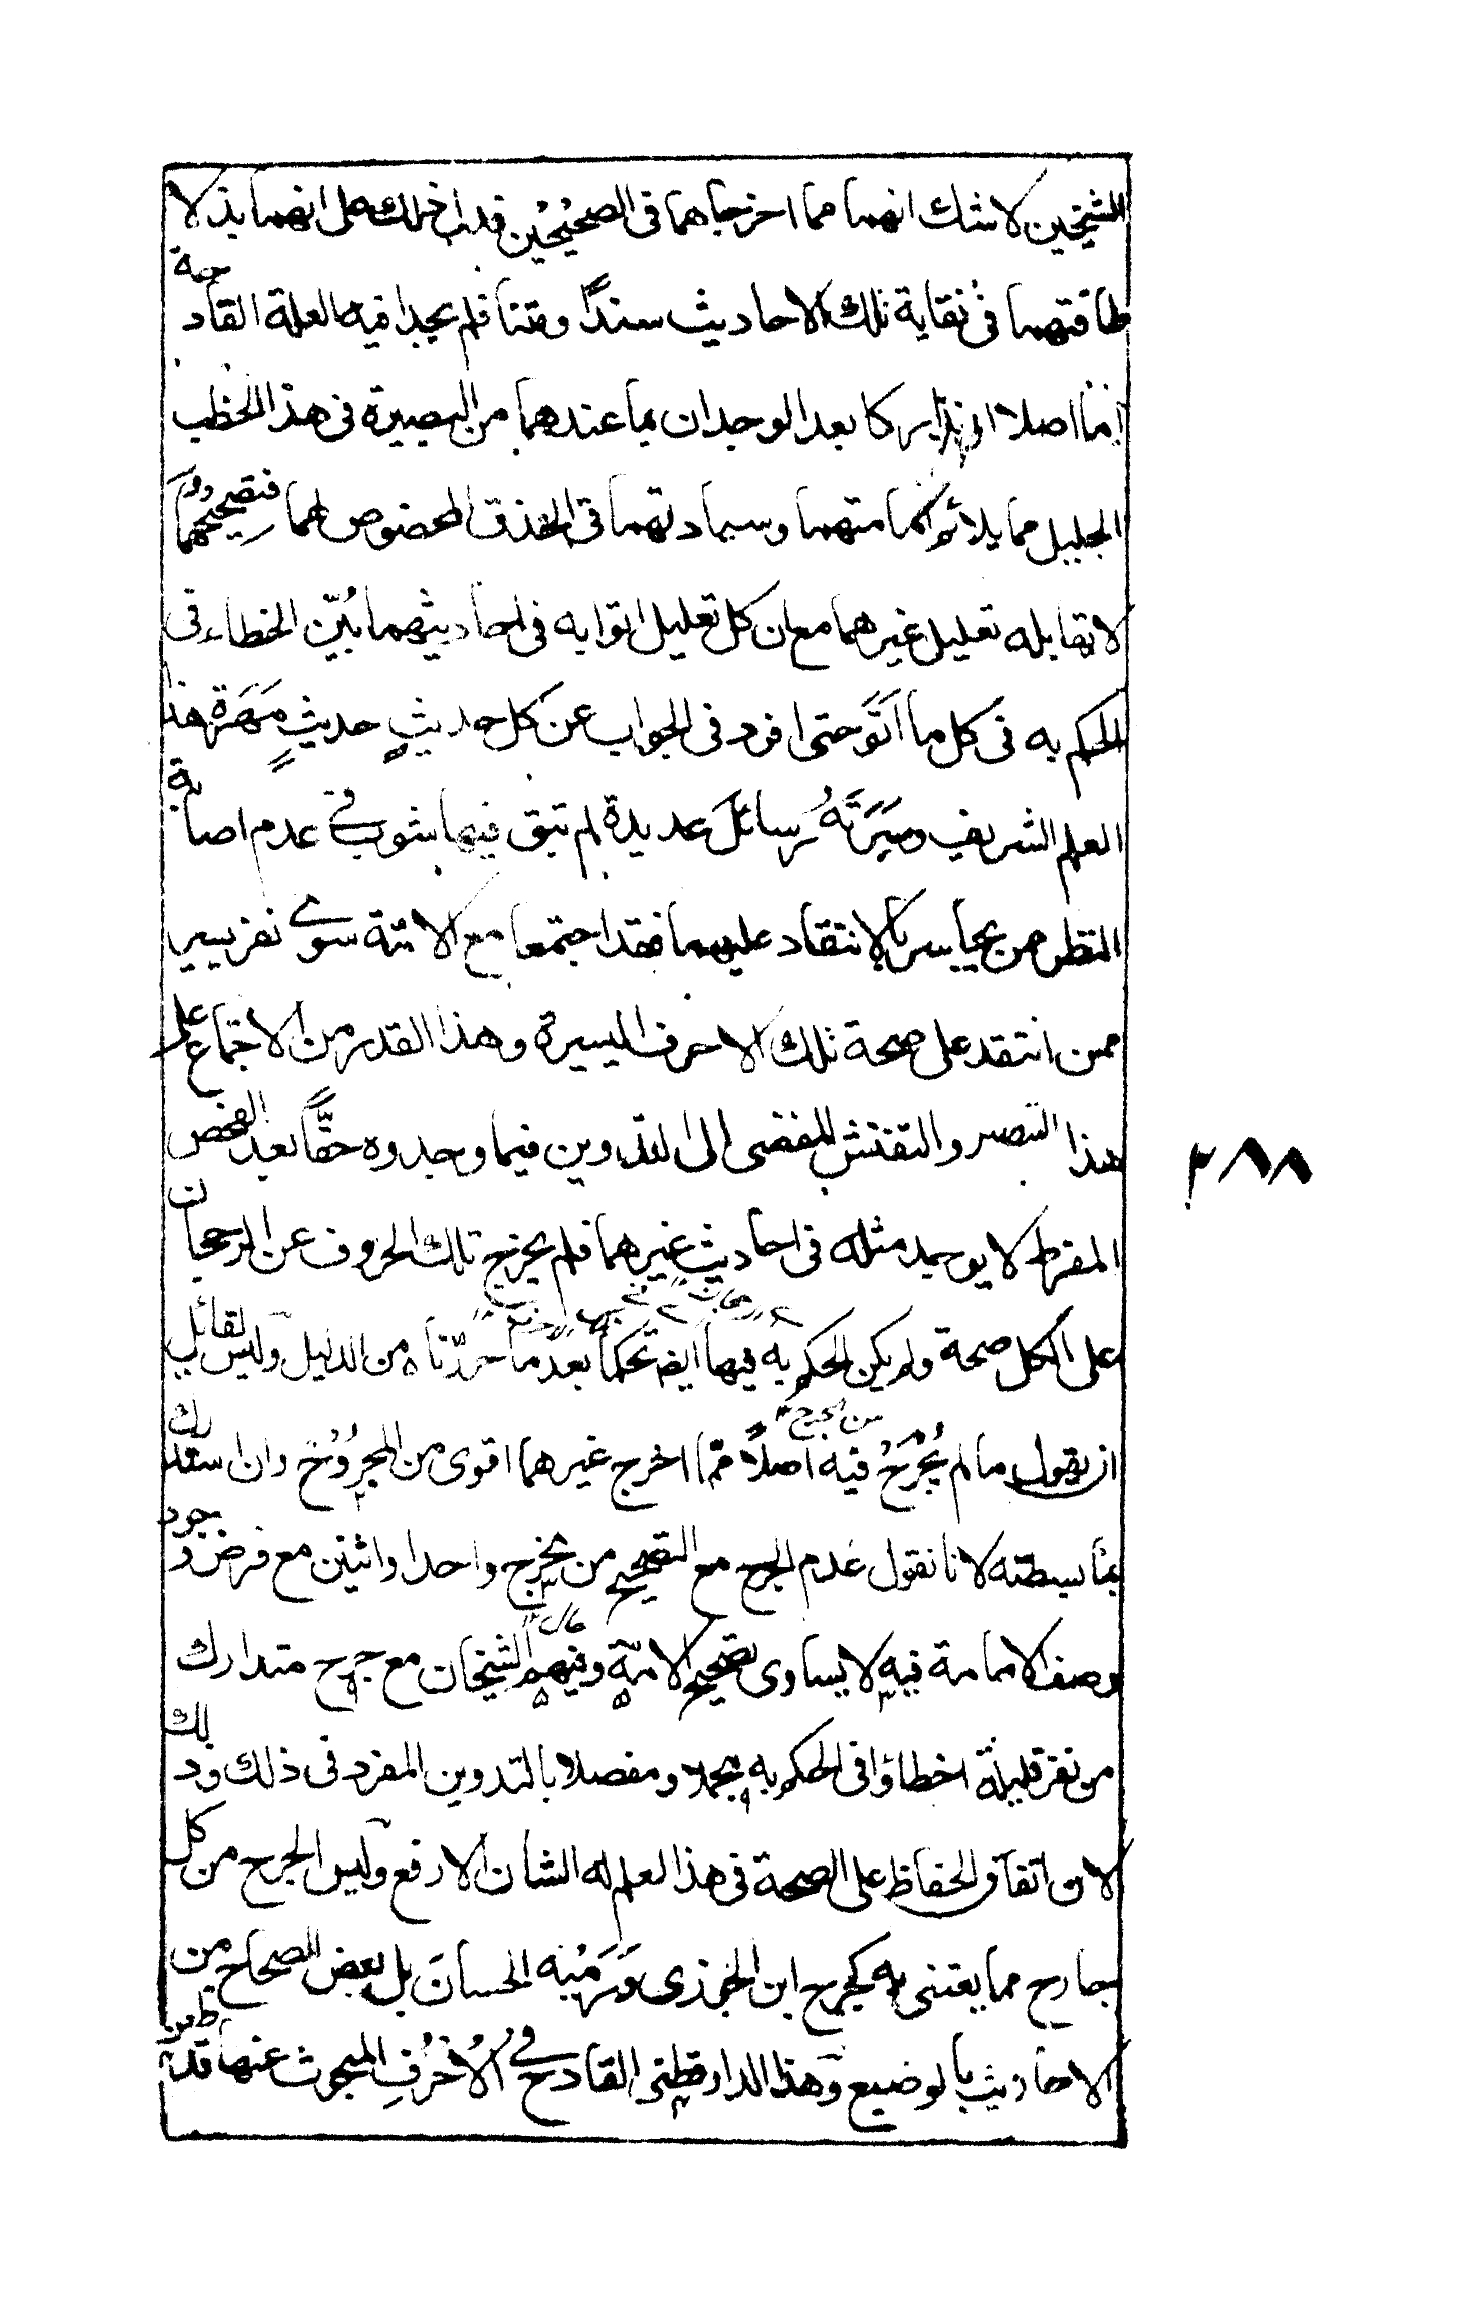 للشيخين لا شك انهما مما اخرجاهما فى الصحيحين فدل ذلك على انهما بذلا
طاقتهما فى نقاية تلك الاحاديث سندًا ومتنا فلم يجدا فيه العلة القادحة
اصلا بعد الوجدان بما عندهما من البصيرة فى هذا الخطب
الجليل مما يلائم وسيادتهما فى الحذق المخصوص لهما فتصحيحهما
لا تقابله تعليل غيرهما مع ان كل تعليل اتوا به فى احاديثهما بُيّن الخطاء فى
الحكم به فى كل ما اتَوا حتى افرد فى الجواب عن كل حديثٍ حديثٍ مَهَرَة هذا
العلم الشريف ومَيَزَتُه رسائل عديدة لم تبق فيها شوب فى عدم اصابة
النظر من بالانتقاد عليهما فقد اجتمعا مع الائمة سوى نفر يسير
ممن انتقد على صحة تلك الاحرف اليسيرة وهذا القدر من الاجتماع على
هذا التبصر والتفتش المفضى الى التدوين فيما وجدوه حقًّا بعد الفحص
المفرط لا يوجد مثله فى احاديث غيرهما فلم يخرج تلك الحروف عن الرجحان
على الكل صحة ولم يكن الحكم به فيها ايضا تحكما بعد ما حررناه من الدليل وليس لقائل
ان يقول ما لم يُجْرَحْ فيه اصلًا ممّا اخرج غيرهما اقوى من المجروح وان
من الجرح
لانا نقول عدم الجرح مع التصحيح من مخرج واحد او اثنين مع فرض وجود
وصف الامامة فيه لا يساوى تصحيح الائمة وفيهم الشيخان مع جرح متدارك
من نفر قليلة اخطاؤا فى الحكم به مجملا ومفصلا بالتدوين المفرد فى ذلك وذلك
لان اتفاق الحفاظ على الصحة فى هذا العلم له الشان الارفع وليس الجرح من كل
جارح مما يعتنى به كجرح ابن الجوزى ورميه الحسان بل بعض الصحاح من
الاحاديث بالوضع وهذا الدارقطنى القادح فى الاحرف المبحوث عنها قد طعن
٢٨٨